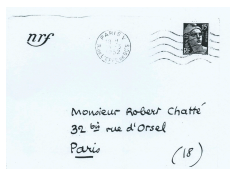 nrf
PARIS
Monsieur Robert Chatté
32 bis rue d'Orsel
Paris (18)